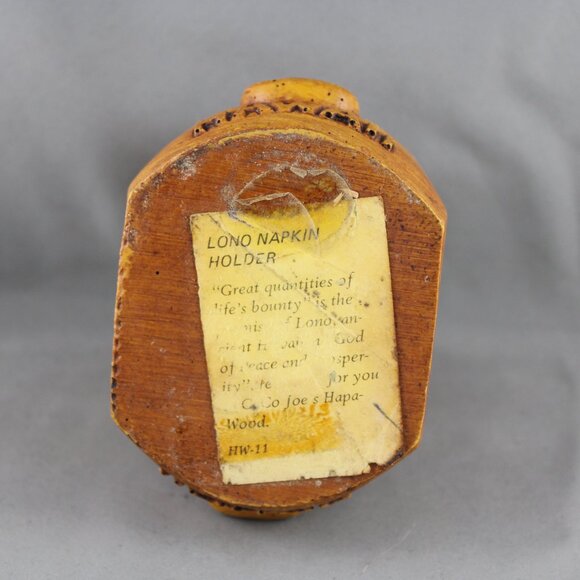 LONO NAPKIN
HOLDER
"Great quantities of
life's bounty" is the
of Lono, an-
God
of Peace and
ity"
for you
Co Joe's Hapa-
Wood.
HW-11